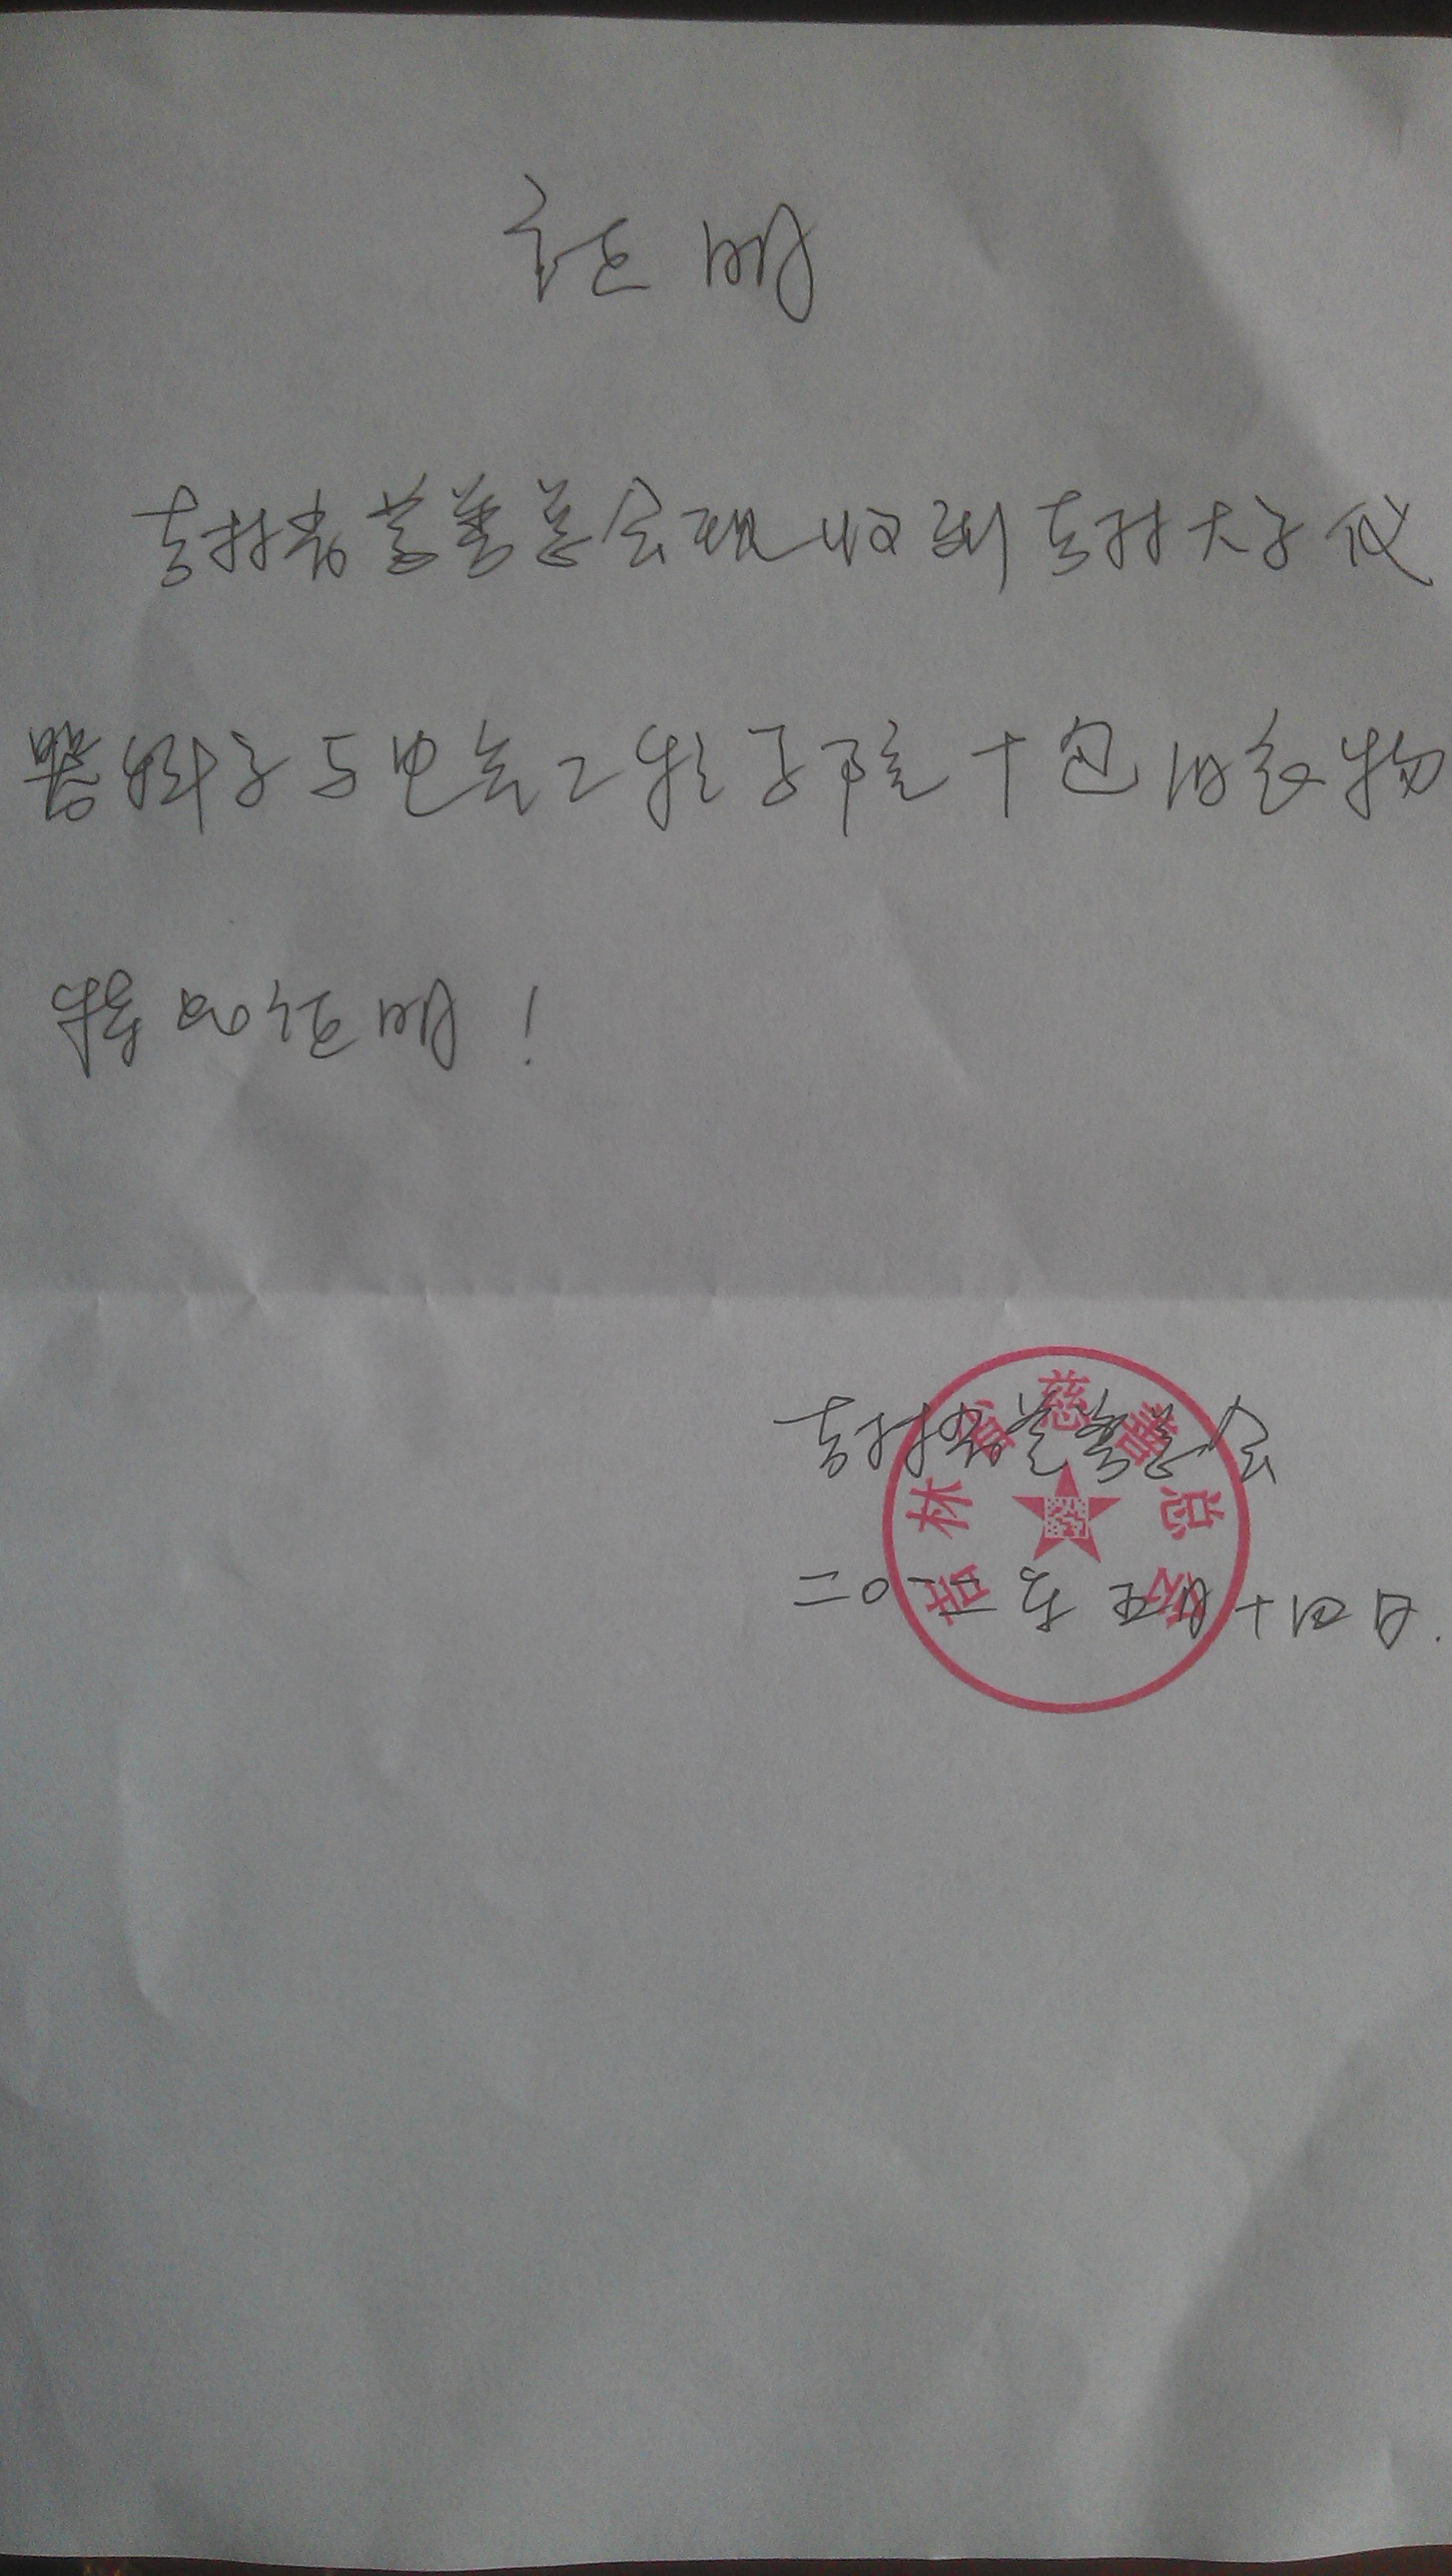 证明
吉林省慈善总会现收到吉林大学仪
器科学与电气工程学院十包旧衣物
特此证明！
吉林省慈善总会
吉林省慈善总会
二〇一二年五月十四日.